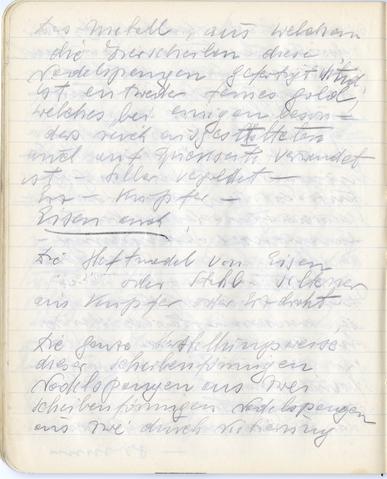 Das Metall, aus welchem
die Zierscheiben dieser
Nadelspangen gefertigt sind,
ist entweder feines Gold,
welches bei einigen beson-
ders reich ausgestatteten
und auf verwendet
ist - Silber vergoldet -
Erz - Kupfer -
Eisen auch
Die Heftnadel von Eisen
oder Stahl - seltener
aus Kupfer oder Erzdraht
Die ganze Herstellungsweise
dieser scheibenförmigen
Nadelspangen aus zwei
scheibenförmigen Nadelspangen
aus zwei durch Nietierung